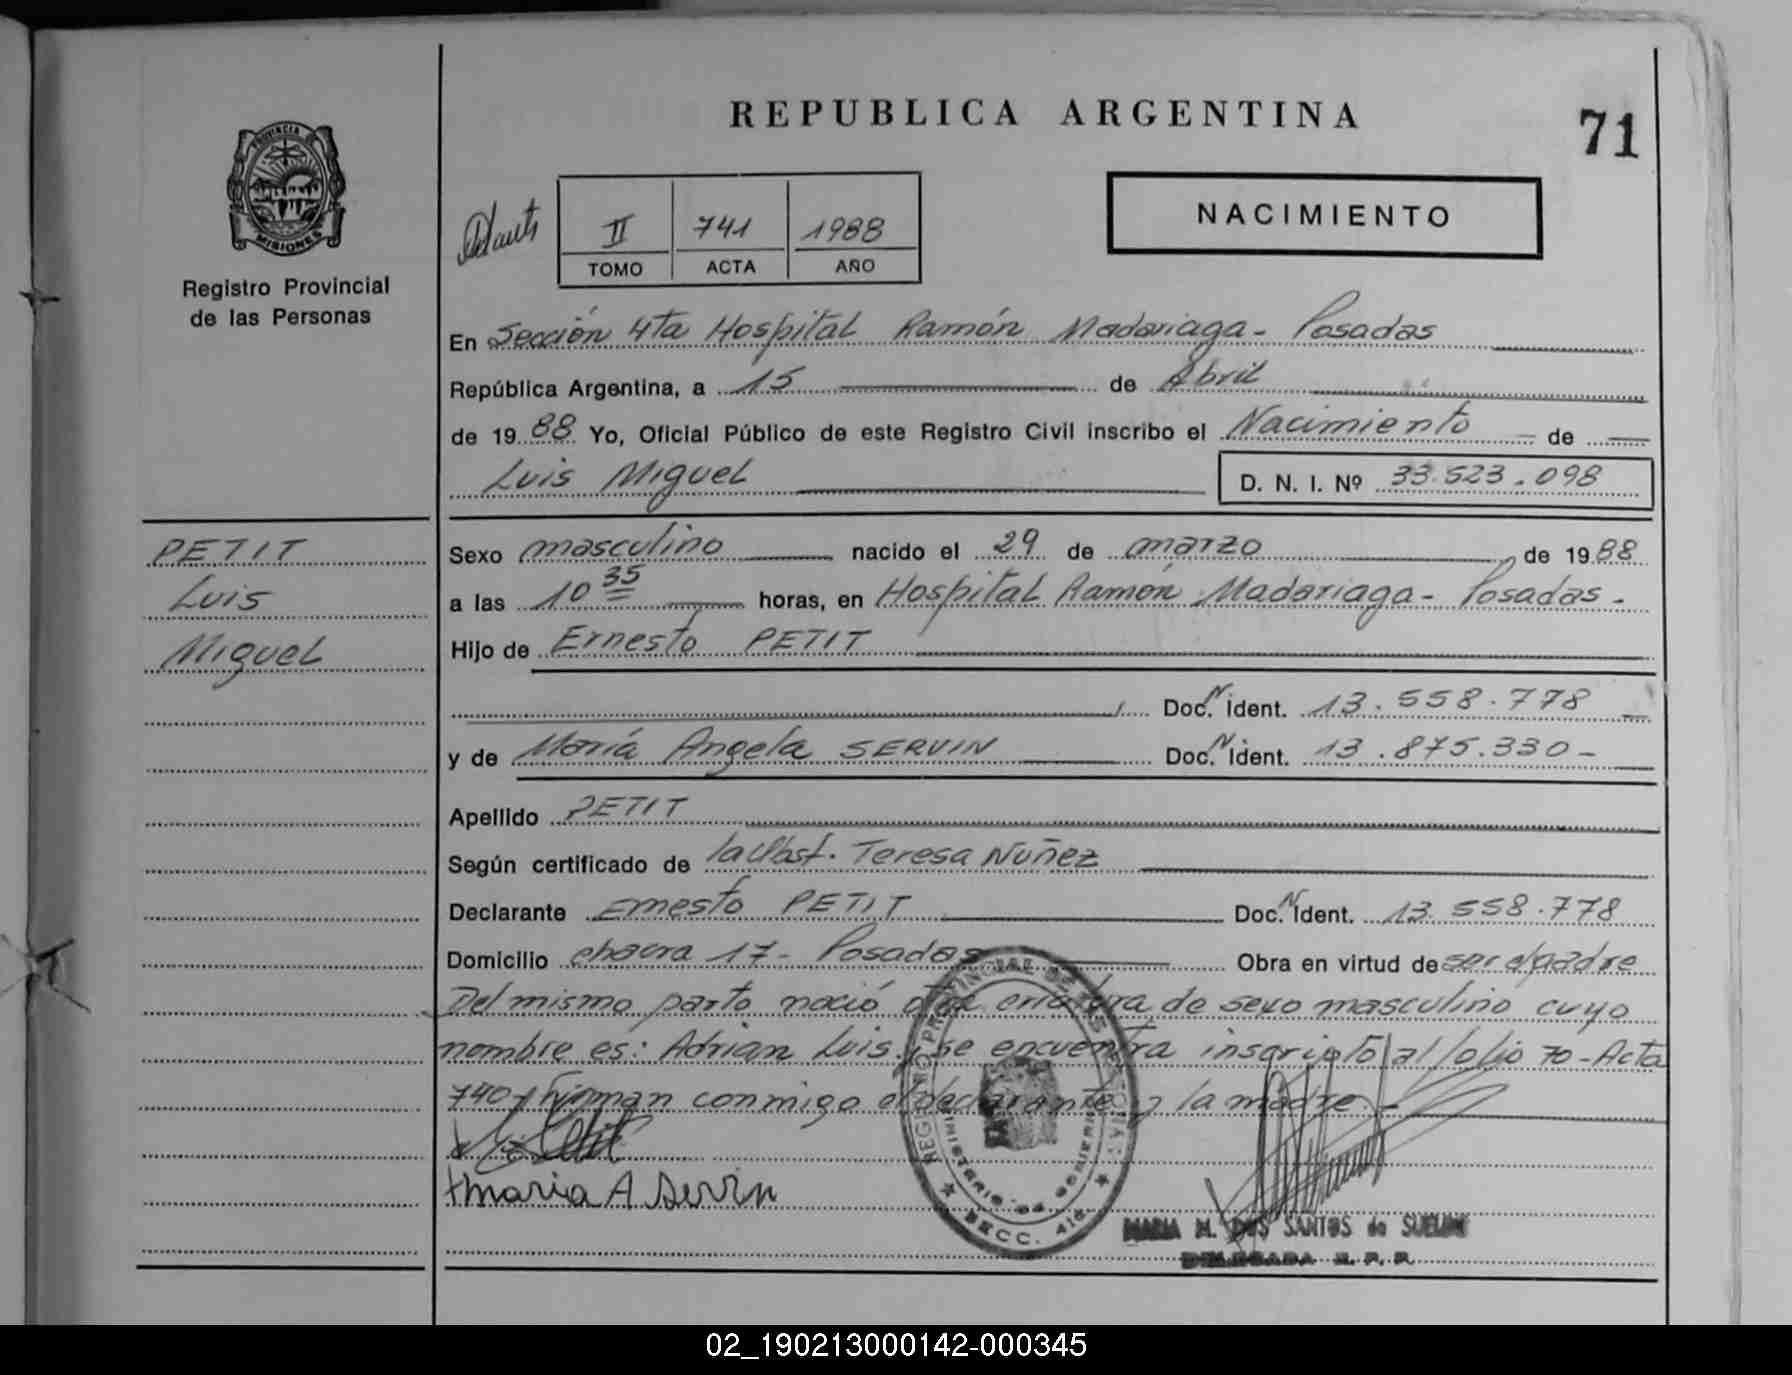 REPUBLICA ARGENTINA
71
PROVINCIA DE
MISIONES
Registro Provincial
de las Personas
II 741 1988
TOMO ACTA AÑO
NACIMIENTO
En Sección 4ta Hospital Ramón Madariaga - Posadas
República Argentina, a 15 de Abril
de 19 88 Yo, Oficial Público de este Registro Civil inscribo el Nacimiento de
Luis Miguel D. N. I. Nº 33.523.098
PETIT
Luis
Miguel
Sexo masculino nacido el 29 de marzo de 19 88
a las 10 35 horas, en Hospital Ramón Madariaga - Posadas -
Hijo de Ernesto PETIT
Doc. N. Ident. 13.558.778
y de María Angela SERVIN Doc. N. Ident. 13.875.330 -
Apellido PETIT
Según certificado de la Obst. Teresa Nuñez
Declarante Ernesto PETIT Doc. N Ident. 13.558.778
Domicilio chacra 17 - Posadas Obra en virtud de ser el padre
Del mismo parto nació otra criatura de sexo masculino cuyo
nombre es: Adrian Luis, se encuentra inscripto al folio 70 - Acta
740, firman conmigo el declarante y la madre. -
Maria A Servin
REGISTRO PROVINCIAL DE LAS PERSONAS
MINISTERIO DE GOBIERNO
SECC. 4ta.
MARIA M. DOS SANTOS de
DELEGADA R. P. P.
02_190213000142-000345